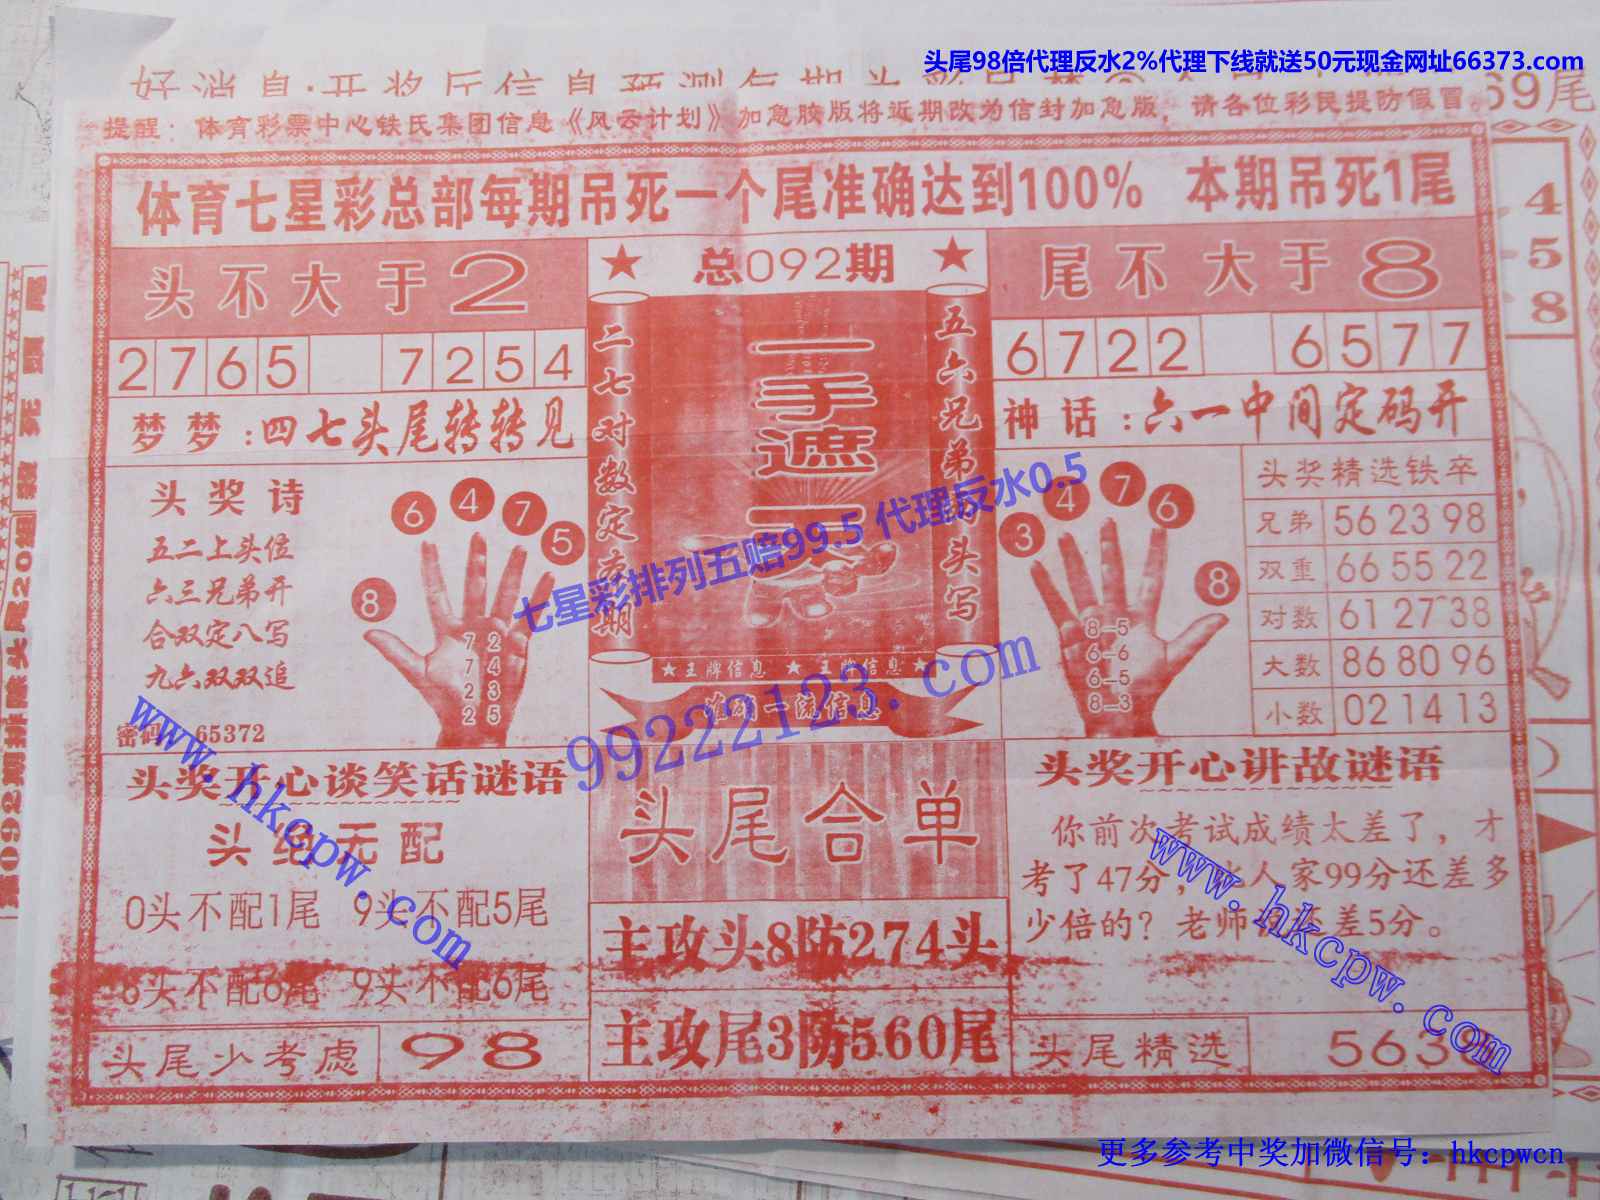 头尾98倍代理反水2%代理下线就送50元现金网址66373.com
69尾
提醒：体育彩票中心铁氏集团信息《风云计划》加急胶版将近期改为信封加急版，请各位彩民提防假冒。
体育七星彩总部每期吊死一个尾准确达到100% 本期吊死1尾
头不大于2
★ 总092期 ★
尾不大于8
2765 7254
6722 6577
梦梦：四七头尾转转见
神话：六一中间定码开
二七对数定
期
一手遮天
五六兄弟
头写
★王牌信息 ★王牌信息★
准确一流信息
头奖诗
五二上头位
六三兄弟开
合双定八写
九六双双追
密码 65372
8 6 4 7 5
7 2
7 4
2 3
2 5
3 4 7 6 8
8-5
6-6
6-5
8-3
头奖精选铁卒
兄弟 56 23 98
双重 66 55 22
对数 61 27 38
大数 86 80 96
小数 02 14 13
头奖开心谈笑话谜语
头绝无配
0头不配1尾 9头不配5尾
6头不配6尾 9头不配6尾
头尾少考虑 98
头尾合单
主攻头8防274头
主攻尾3防560尾
头奖开心讲故谜语
你前次考试成绩太差了，才
考了47分，
人家99分还差多
少倍的？老师
还差5分。
头尾精选 563
七星彩排列五赔99.5 代理反水0.5
99222123.com
www.hkcpw.com
www.hkcpw.com
4
5
8
更多参考中奖加微信号：hkcpwcn